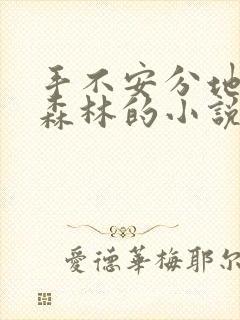 手不安分地
森林的小説
愛德華梅耶尔